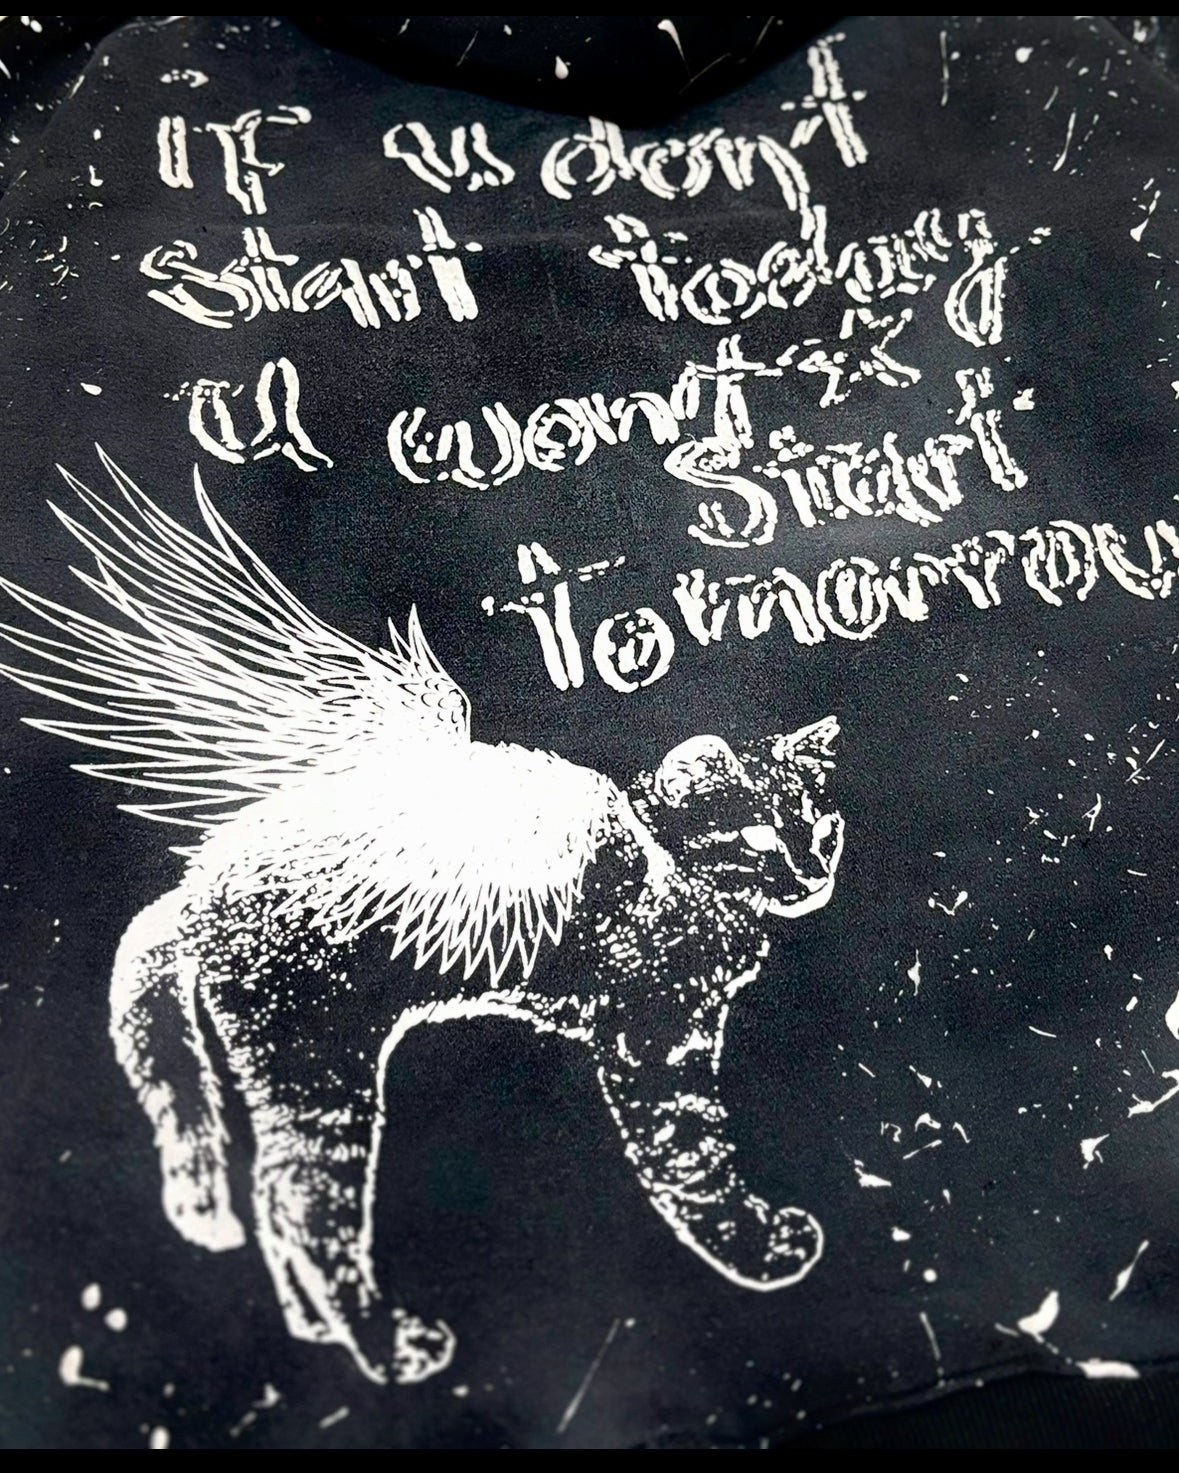 if u don't
start today
u won't
start
tomorrow